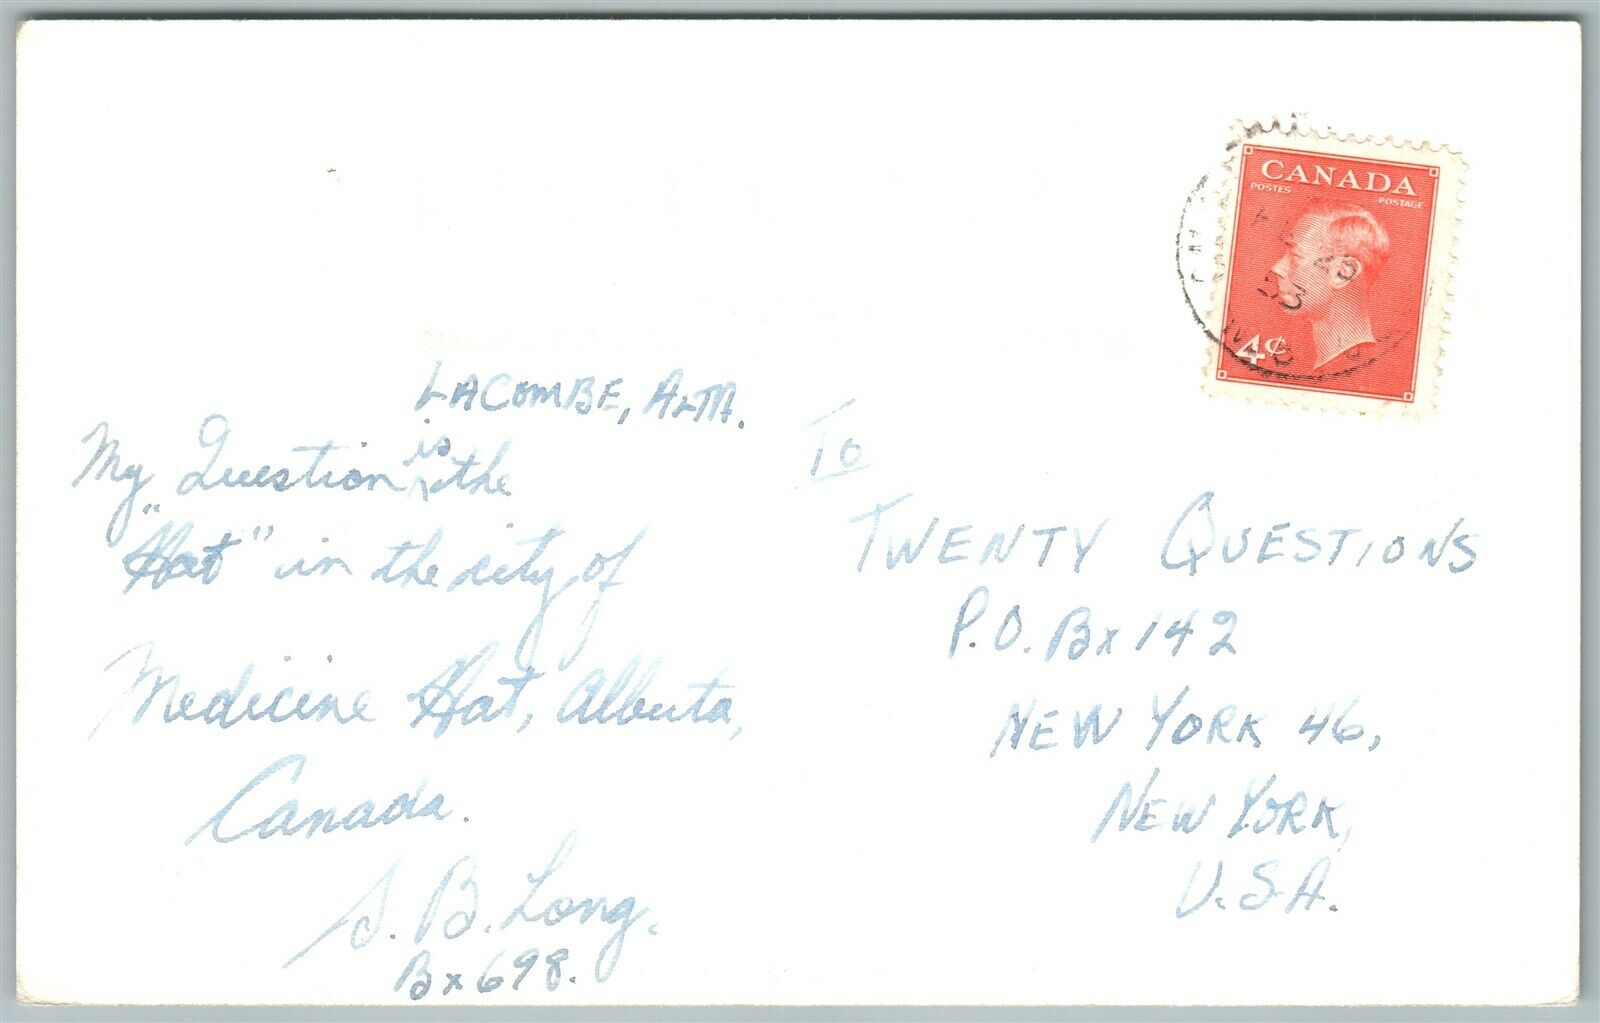 CANADA
POSTES POSTAGE
25
53
4¢
LACOMBE, ALTA.
My Question is the
"Hat" in the city of
Medicine Hat, Alberta,
Canada.
S. B. Long.
Bx 698.
To
TWENTY QUESTIONS
P.O. Bx 142
NEW YORK 46,
NEW YORK,
U.S.A.